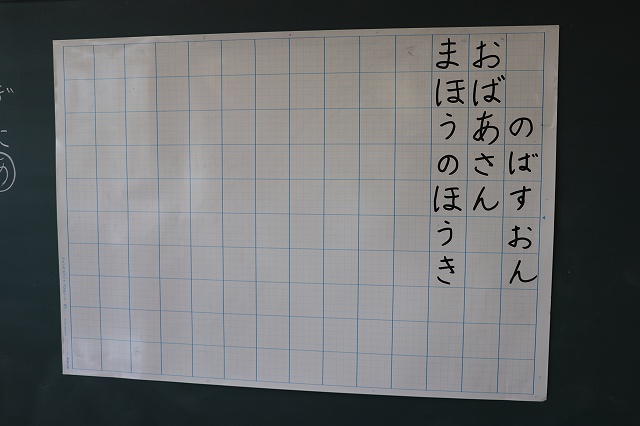 のばすおん
おばあさん
まほうのほうき
め